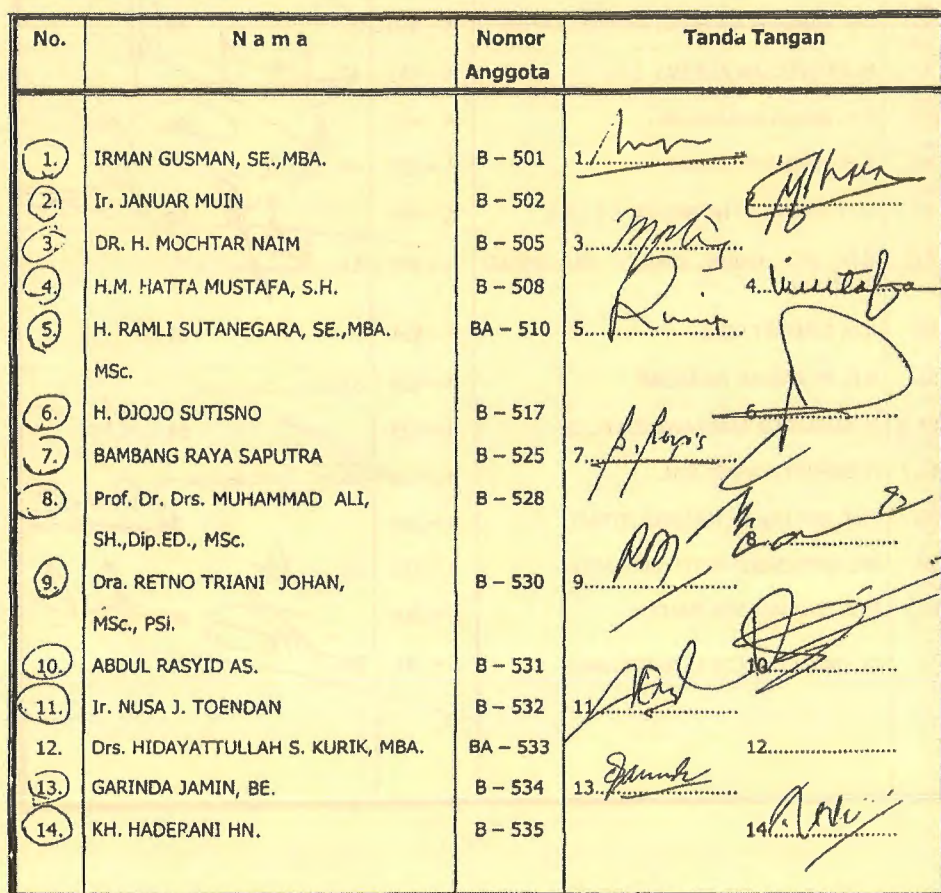 No. Nama Nomor Anggota Tanda Tangan
1. IRMAN GUSMAN, SE.,MBA. B – 501 1.
2. Ir. JANUAR MUIN B – 502 2.
3. DR. H. MOCHTAR NAIM B – 505 3.
4. H.M. HATTA MUSTAFA, S.H. B – 508 4.
5. H. RAMLI SUTANEGARA, SE.,MBA. BA – 510 5.
MSc.
6. H. DJOJO SUTISNO B – 517 6.
7. BAMBANG RAYA SAPUTRA B – 525 7.
8. Prof. Dr. Drs. MUHAMMAD ALI, B – 528 8.
SH.,Dip.ED., MSc.
9. Dra. RETNO TRIANI JOHAN, B – 530 9.
MSc., PSi.
10. ABDUL RASYID AS. B – 531 10.
11. Ir. NUSA J. TOENDAN B – 532 11.
12. Drs. HIDAYATTULLAH S. KURIK, MBA. BA – 533 12.
13. GARINDA JAMIN, BE. B – 534 13.
14. KH. HADERANI HN. B – 535 14.